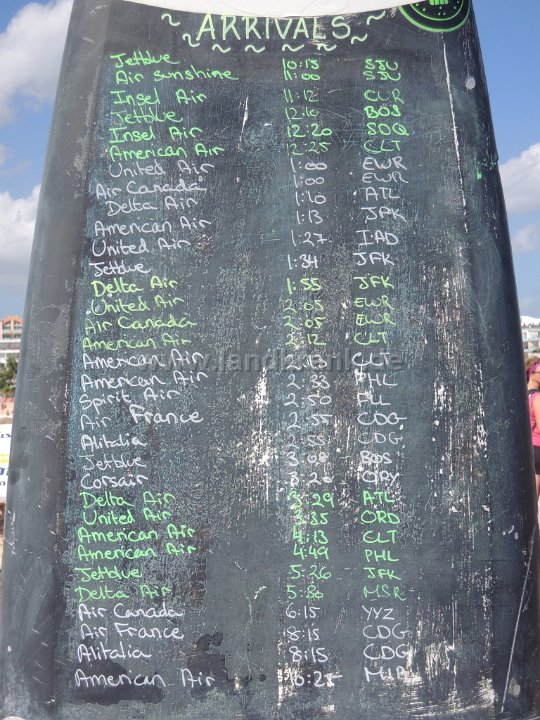 ~ ARRIVALS ~
Jetblue 10:15 SJU
Air sunshine 11:00 SJU
Insel Air 11:12 CUR
Jetblue 12:10 BOS
Insel Air 12:20 SDQ
American Air 12:25 CLT
United Air 1:00 EWR
Air Canada 1:00 EWR
Delta Air 1:10 ATL
American Air 1:13 JFK
United Air 1:27 IAD
Jetblue 1:34 JFK
Delta Air 1:55 JFK
United Air 2:05 EWR
Air Canada 2:05 EWR
American Air 2:12 CLT
American Air CLT
American Air 2:33 PHL
Spirit Air 2:50 FLL
Air France 2:55 CDG
Alitalia 2:55 CDG
Jetblue 3:08 BOS
Corsair 3:20 ORY
Delta Air 3:29 ATL
United Air 3:35 ORD
American Air 4:13 CLT
American Air 4:49 PHL
Jetblue 5:26 JFK
Delta Air 5:36 MSR
Air Canada 6:15 YYZ
Air France 8:15 CDG
Alitalia 8:15 CDG
American Air 10:25